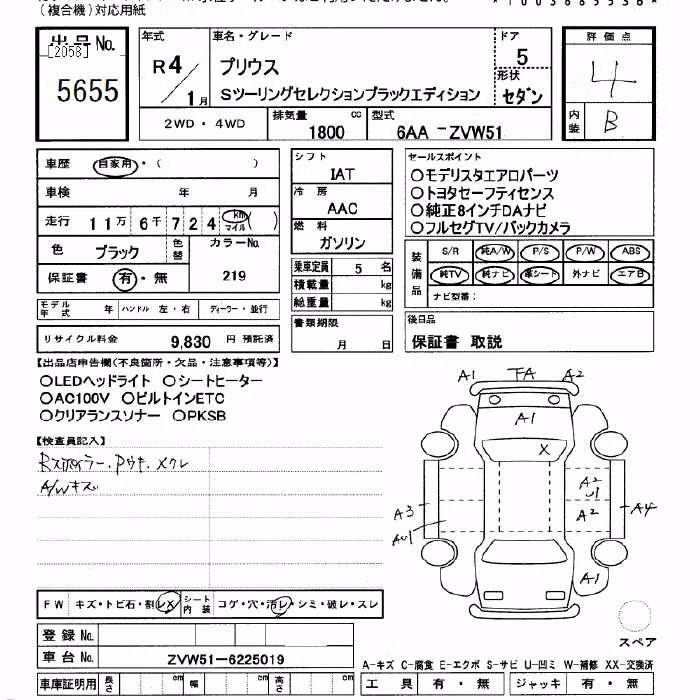 (複合機)対応用紙
出品No.
[2058]
5655
年式
R4/1月
車名・グレード
プリウス
Sツーリングセレクションブラックエディション
ドア
5
形状
セダン
評価点
4
内装
B
2WD・4WD
排気量
1800 cc
型式
6AA-ZVW51
車歴
自家用・( )
車検 年 月
走行 11万 6千 724 km マイル ( )
色 ブラック
色替
カラーNo.
219
保証書 有・無
モデル年式 年
ハンドル 左・右
ディーラー・並行
リサイクル料金 9,830 円 預託済
シフト
IAT
冷房
AAC
燃料
ガソリン
乗車定員 5 名
積載量 kg
総重量 kg
書類期限
月 日
セールスポイント
○モデリスタエアロパーツ
○トヨタセーフティセンス
○純正8インチDAナビ
○フルセグTV/バックカメラ
装備品
S/R 純A/W P/S P/W ABS
純TV 純ナビ 革シート 外ナビ エアB
ナビ型番:
後日品
保証書 取説
【出品店申告欄(不良箇所・欠品・注意事項等)】
○LEDヘッドライト ○シートヒーター
○AC100V ○ビルトインETC
○クリアランスソナー ○PKSB
【検査員記入】
Rスポイラー.ドウキ.メクレ
A/Wキズ
A1 FA A2
A1
X
A2
U1
A2
A3
AU1
A4
A1
スペア
FW キズ・トビ石・割レX
シート内装 コゲ・穴・汚レ・シミ・破レ・スレ
登録No.
車台No. ZVW51-6225019
車庫証明用 長さ cm 幅 cm 高さ cm
A-キズ C-腐食 E-エクボ S-サビ U-凹ミ W-補修 XX-交換済
工具 有・無 ジャッキ 有・無